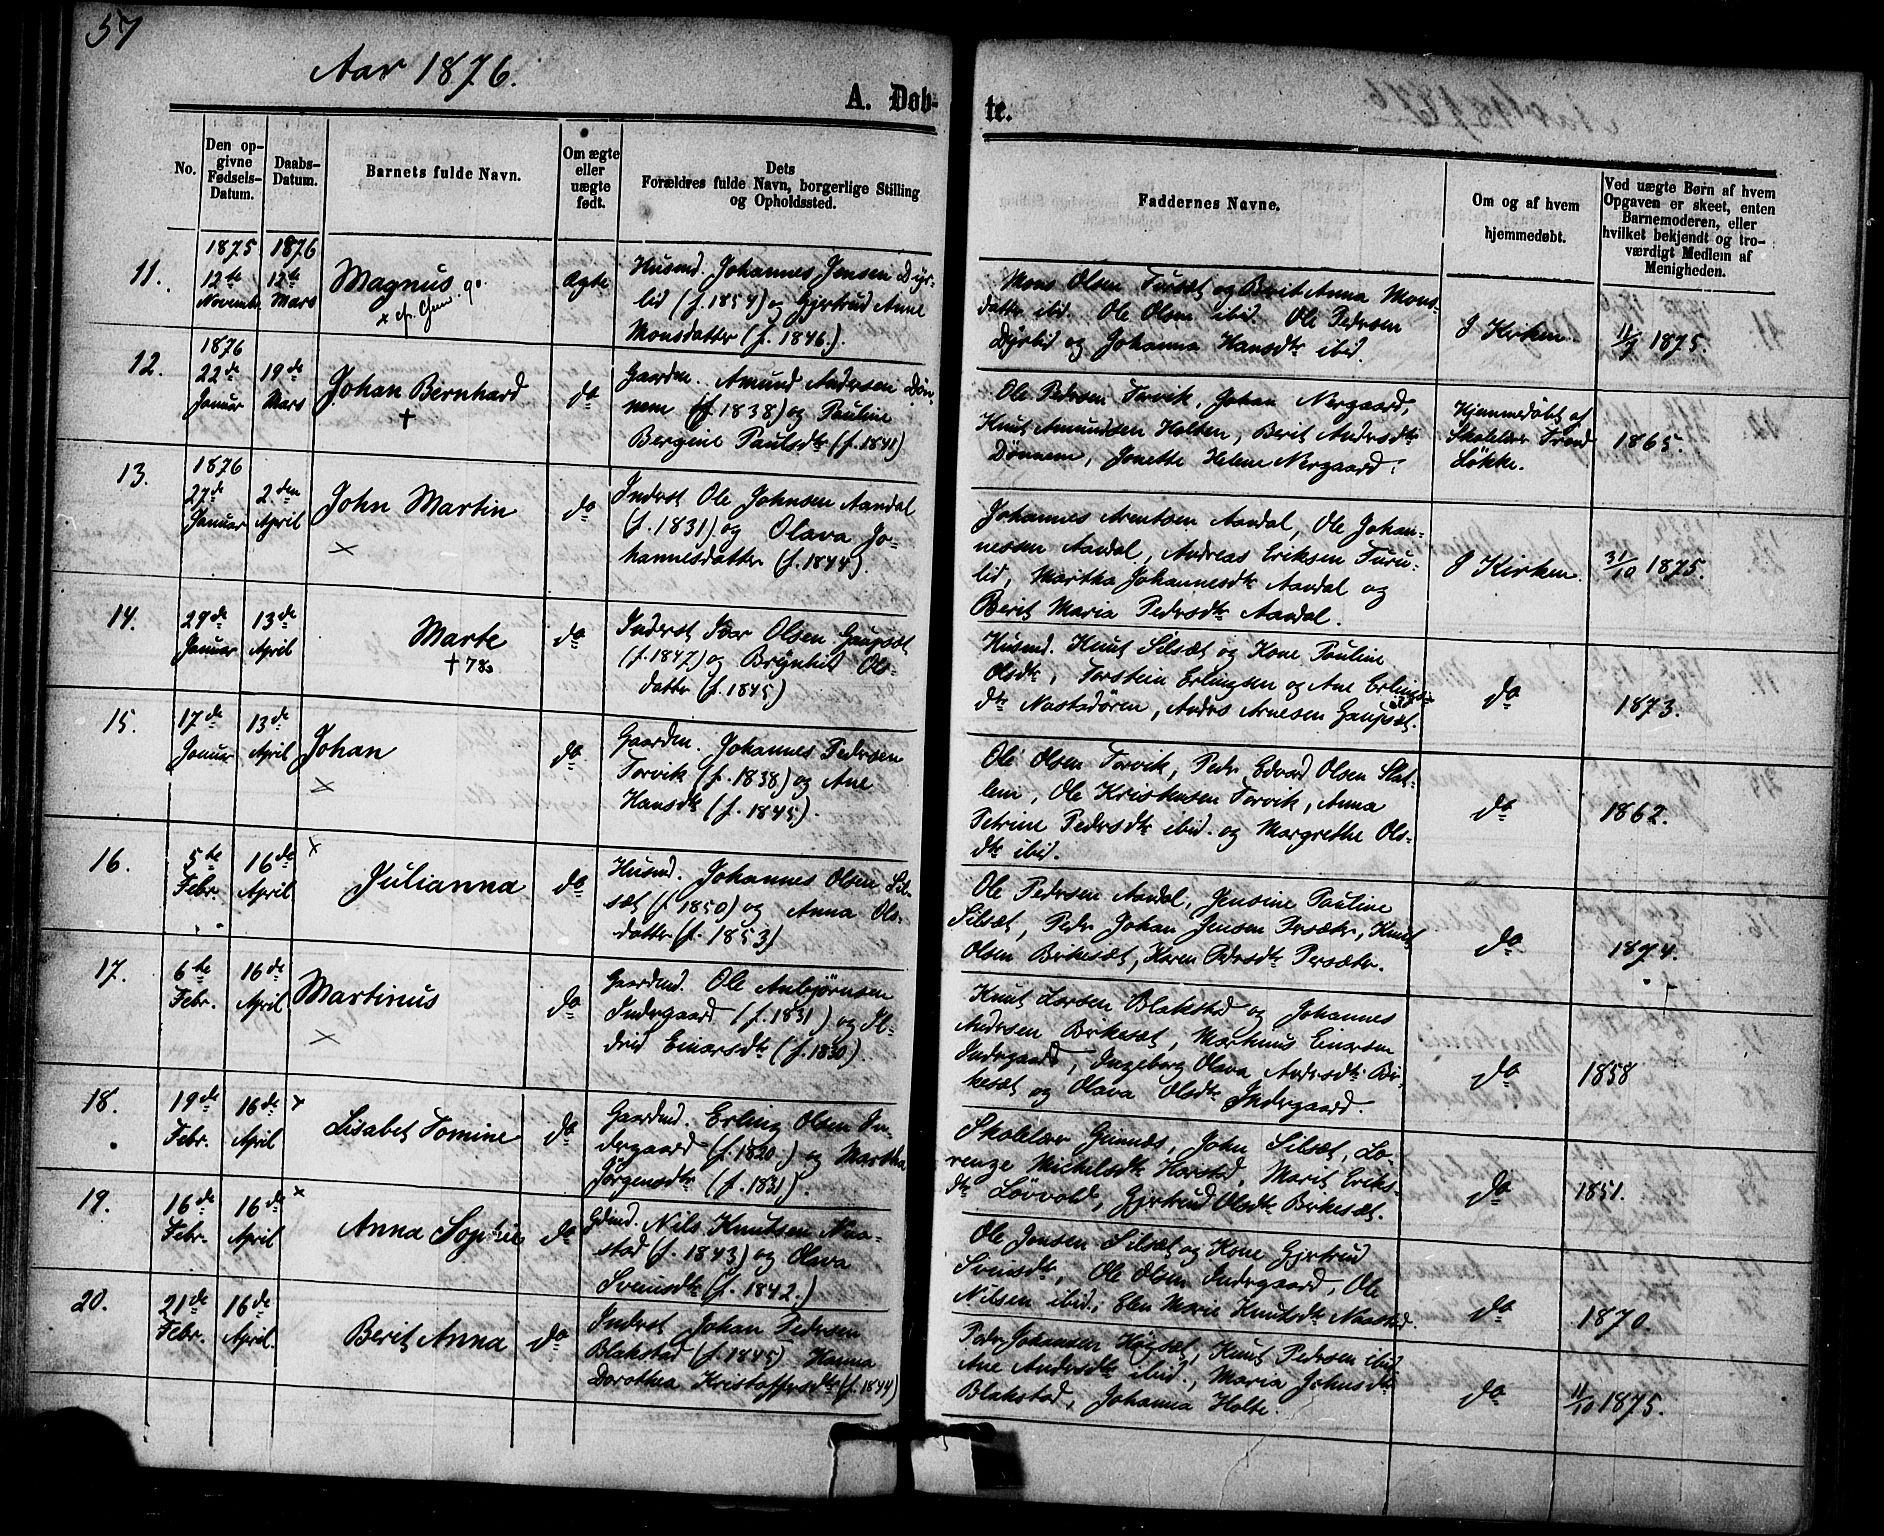 57
Aar 1876.
A. Døb-
te.
No.
Den op-
givne
Fødsels-
Datum.
Daabs-
Datum.
Barnets fulde Navn.
Om ægte
eller
uægte
født.
Dets
Forældres fulde Navn, borgerlige Stilling
og Opholdssted.
Faddernes Navne.
Om og af hvem
hjemmedøbt.
Ved uægte Børn af hvem
Opgaven er skeet, enten
Barnemoderen, eller
hvilket bekjendt og tro-
værdigt Medlem af
Menigheden.
11.
1875
12te
Novembr
1876
12te
Mars
Magnus
Ægte
Husmd. Johannes Jensen Dyr-
lid (f. 1854) og Gjertrud Anne
Monsdatter (f. 1846).
Mons Olsen Tusæt og Berit Anna Mons-
datter ibid. Ole Olsen ibid. Ole Pedersen
Dyrlid og Johanna Hansdtr ibid.
I Kirken.
11/9 1875.
12.
1876
22de
Januar
19de
Mars
Johan Bernhard
†
do
Gaardm. Amund Andersen Døn-
nem (f. 1838) og Pauline
Bergine Paulsdtr (f. 1841)
Ole Pedersen Torvik, Johan Nergaard,
Knut Amundsen Holten, Berit Andersdtr
Dønnem, Jonette Helene Nergaard.
Hjemmedøbt af
Skolelærer Trond
Løkke.
1865.
13.
1876
27de
Januar
2den
April
John Martin
×
do
Inderst Ole Johnsen Aandal
(f. 1831) og Olava Jo-
hannesdatter (f. 1844).
Johannes Arntsen Aandal, Ole Johan-
nessen Aandal, Andreas Eriksen Furu-
lid, Martha Johannesdtr Aandal og
Berit Maria Pedersdtr Aandal.
I Kirken.
31/10 1875.
14.
29de
Januar
13de
April
Marte
†
do
Inderst Ivar Olsen Gaupsæt
(f. 1847) og Brynhild Ols-
datter (f. 1845)
Husmd. Knut Silsæt og Kone Pauline
Olsdtr, Torstein Erlingsen og Ane Erlings-
dtr Nastadøren, Anders Arnesen Gaupsæt.
do
1873.
15.
17de
Januar
13de
April
Johan
×
do
Gaardm. Johannes Pedersen
Torvik (f. 1838) og Ane
Hansdtr (f. 1845).
Ole Olsen Torvik, Peder Edvard Olsen Slat-
lem, Ole Kristensen Torvik, Anna
Petrine Pedersdtr ibid. og Margrethe Ols-
dtr ibid.
do
1862.
16.
5te
Febr.
16de
April
×
Julianna
do
Husmd. Johannes Olsen Sil-
sæt (f. 1850) og Anna Ols-
datter (f. 1853)
Ole Pedersen Aandal, Jensine Pauline
Silsæt, Peder Johan Jensen Persæter, Knut
Olsen Birkesæt, Karen Pedersdtr Persæter.
do
1874.
17.
6te
Febr.
16de
April
Martinus
×
do
Gaardmd. Ole Anbjørnsen
Indergaard (f. 1831) og Il-
drid Einarsdtr (f. 1830).
Knut Larsen Blakstad og Johannes
Andersen Birkesæt, Martinus Einarsen
Indergaard, Ingeborg Olava Andersdtr Bir-
kesæt og Olava Olsdtr Indergaard.
do
1858
18.
19de
Febr.
16de
April
×
Lisabet Tomine
do
Gaardmd. Erling Olsen In-
dergaard (f. 1820) og Martha
Jørgensdtr (f. 1831).
Skolelærer Gumnæs, John Silsæt, Lo-
renze Michelsdtr Harstad, Marit Eriks-
dtr Løvvold, Gjertrud Olsdtr Birkesæt.
do
1851.
19.
16de
Febr.
16de
April
×
Anna Sophie
do
Gdmd. Nils Knutsen Naa-
stad (f. 1843) og Olava
Sveinsdtr (f. 1842.)
Ole Jensen Silsæt og Kone Gjertrud
Sveinsdtr, Ole Olsen Indergaard, Ole
Nilsen ibid., Elen Marie Knutsdtr Naastad.
do
1870.
20.
21de
Febr.
16de
April.
Berit Anna
do
Inderst Johan Pedersen
Blakstad (f. 1845) Hanna
Dorothea Kristoffersdtr (f. 1844)
Peder Johansen Høgsæt, Knut Pedersen ibid
Ane Andersdtr ibid., Maria Johnsdtr
Blakstad, Johanna Holte.
do
11/10 1875.